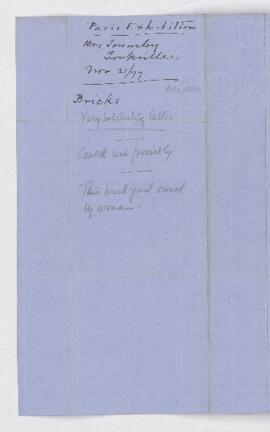 Paris Exhibition
Mrs Townley
Yorkville
Nov 21/77
Bricks
Very interesting letter
Could use possibly
This brick yard owned
by woman